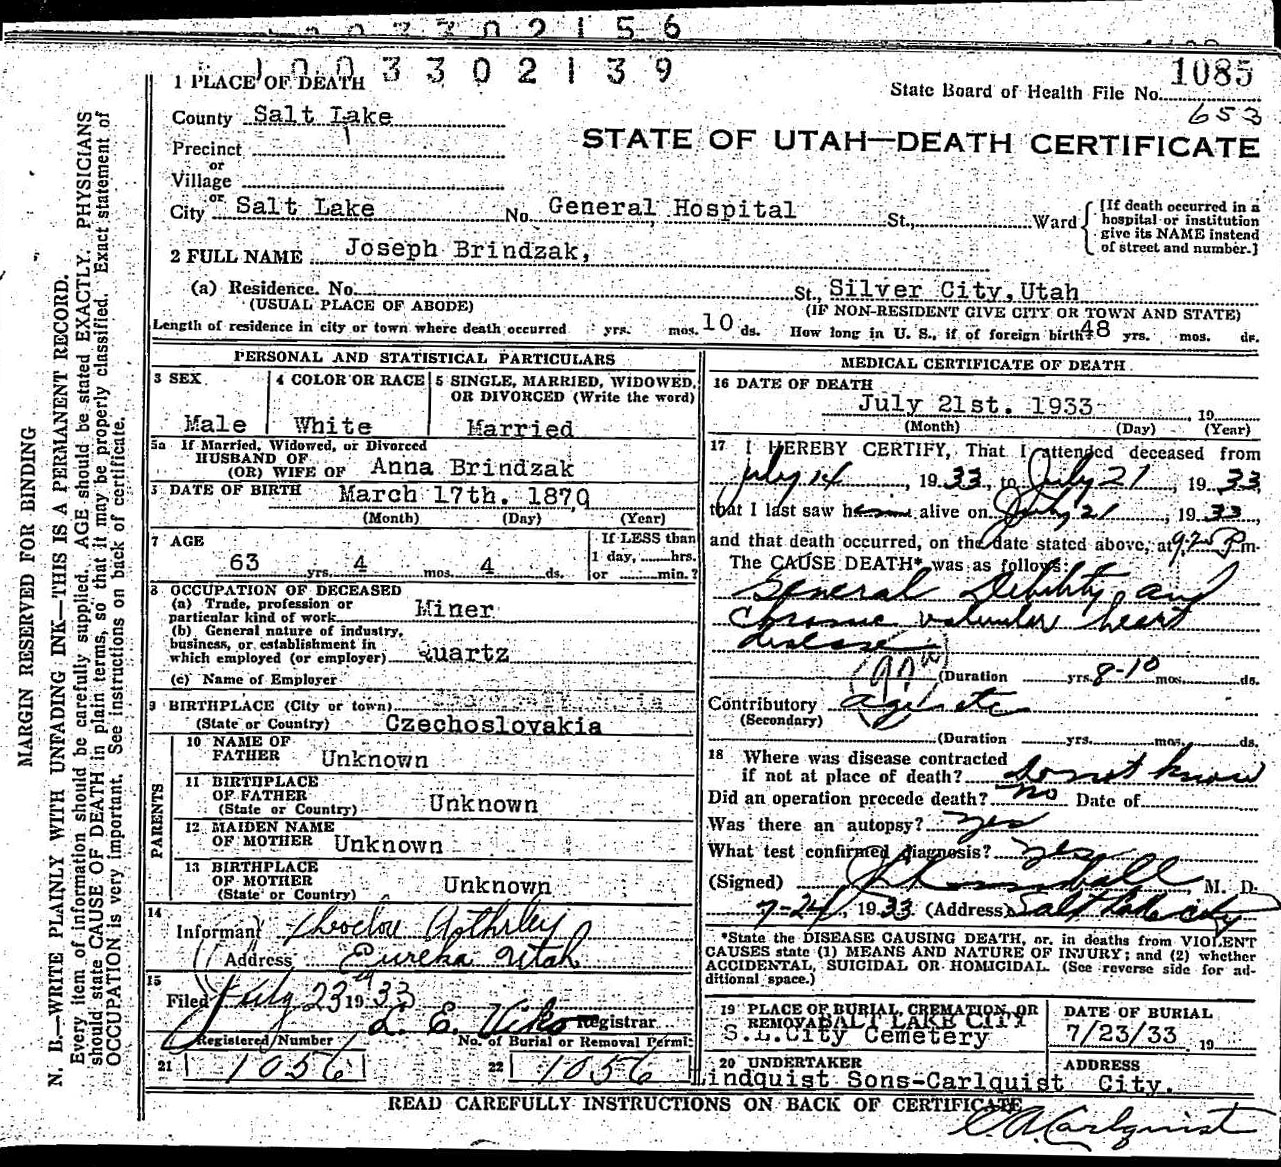 3302156
1003302139
1085
1 PLACE OF DEATH
State Board of Health File No.
653
County Salt Lake
STATE OF UTAH—DEATH CERTIFICATE
Precinct
or
Village
or
City Salt Lake No. General Hospital St., Ward
[If death occurred in a
hospital or institution
give its NAME instead
of street and number.]
2 FULL NAME Joseph Brindzak,
(a) Residence. No. St., Silver City, Utah
(USUAL PLACE OF ABODE) (IF NON-RESIDENT GIVE CITY OR TOWN AND STATE)
Length of residence in city or town where death occurred yrs. mos. 10 ds. How long in U. S., if of foreign birth 48 yrs. mos. ds.
PERSONAL AND STATISTICAL PARTICULARS
3 SEX 4 COLOR OR RACE 5 SINGLE, MARRIED, WIDOWED,
OR DIVORCED (Write the word)
Male White Married
5a If Married, Widowed, or Divorced
HUSBAND OF
(OR) WIFE OF Anna Brindzak
DATE OF BIRTH March 17th. 1870
(Month) (Day) (Year)
7 AGE If LESS than
1 day, hrs.
or min.?
63 yrs. 4 mos. 4 ds.
8 OCCUPATION OF DECEASED
(a) Trade, profession or
particular kind of work Miner
(b) General nature of industry,
business, or establishment in
which employed (or employer) Quartz
(c) Name of Employer
9 BIRTHPLACE (City or town)
(State or Country) Czechoslovakia
PARENTS
10 NAME OF
FATHER Unknown
11 BIRTHPLACE
OF FATHER
(State or Country) Unknown
12 MAIDEN NAME
OF MOTHER Unknown
13 BIRTHPLACE
OF MOTHER
(State or Country) Unknown
14
Informant
Address Eureka Utah
15
Filed July 23rd 1933
L. E. Viko Registrar
Registered Number No. of Burial or Removal Permit
21 1056 22 1056
MEDICAL CERTIFICATE OF DEATH
16 DATE OF DEATH
July 21st. 1933 , 19
(Month) (Day) (Year)
17 I HEREBY CERTIFY, That I attended deceased from
July 14, 1933, to July 21, 1933,
that I last saw him alive on July 21, 1933,
and that death occurred, on the date stated above, at 9:20 P m.
The CAUSE DEATH* was as follows:
General Debility and
Chronic valvular heart
disease
(Duration yrs. 8-10 mos. ds.
Contributory age etc
(Secondary)
(Duration yrs. mos. ds.
18 Where was disease contracted
if not at place of death? Do not know
Did an operation precede death? No Date of
Was there an autopsy? yes
What test confirmed diagnosis? yes
(Signed) , M. D.
7-24, 1933 (Address) Salt Lake City
*State the DISEASE CAUSING DEATH, or, in deaths from VIOLENT
CAUSES state (1) MEANS AND NATURE OF INJURY; and (2) whether
ACCIDENTAL, SUICIDAL OR HOMICIDAL. (See reverse side for ad-
ditional space.)
19 PLACE OF BURIAL, CREMATION, OR
REMOVAL SALT LAKE CITY
S.L.City Cemetery
DATE OF BURIAL
7/23/33 19
20 UNDERTAKER ADDRESS
Lindquist Sons-Carlquist City.
READ CAREFULLY INSTRUCTIONS ON BACK OF CERTIFICATE
C. A. Carlquist
MARGIN RESERVED FOR BINDING
N. B.—WRITE PLAINLY WITH UNFADING INK—THIS IS A PERMANENT RECORD.
Every item of information should be carefully supplied. AGE should be stated EXACTLY. PHYSICIANS
should state CAUSE OF DEATH in plain terms, so that it may be properly classified. Exact statement of
OCCUPATION is very important. See instructions on back of certificate.